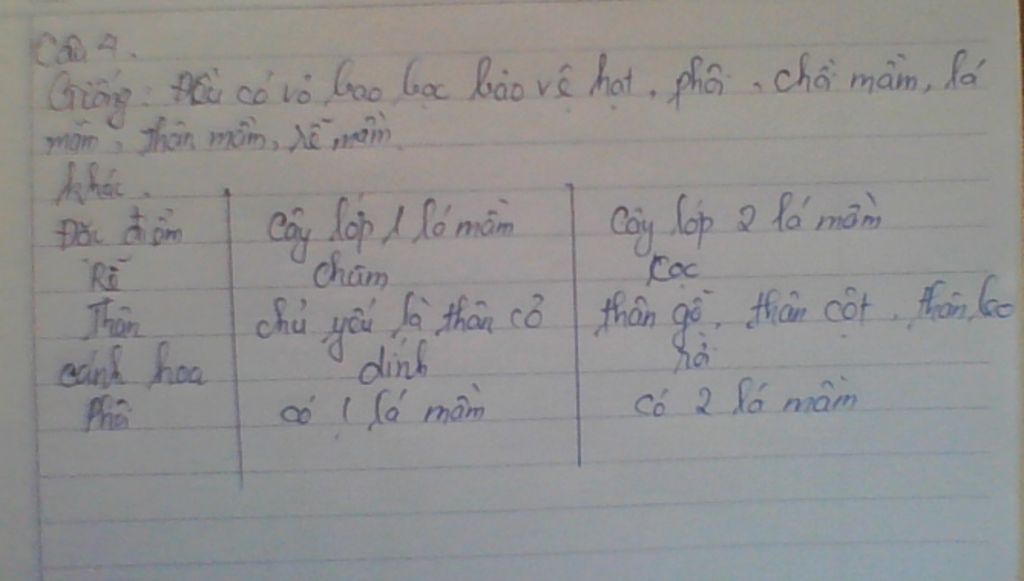 Câu 4.
Giống: Đều có vỏ bao bọc bảo vệ hạt, phôi, chồi mầm, lá
mầm, thân mầm, rễ mầm.
Khác.
Đặc điểm Cây lớp 1 lá mầm Cây lớp 2 lá mầm
Rễ chùm cọc
Thân chủ yếu là thân cỏ thân gỗ, thân cột, thân bò
cánh hoa dính rời
Phôi có 1 lá mầm có 2 lá mầm